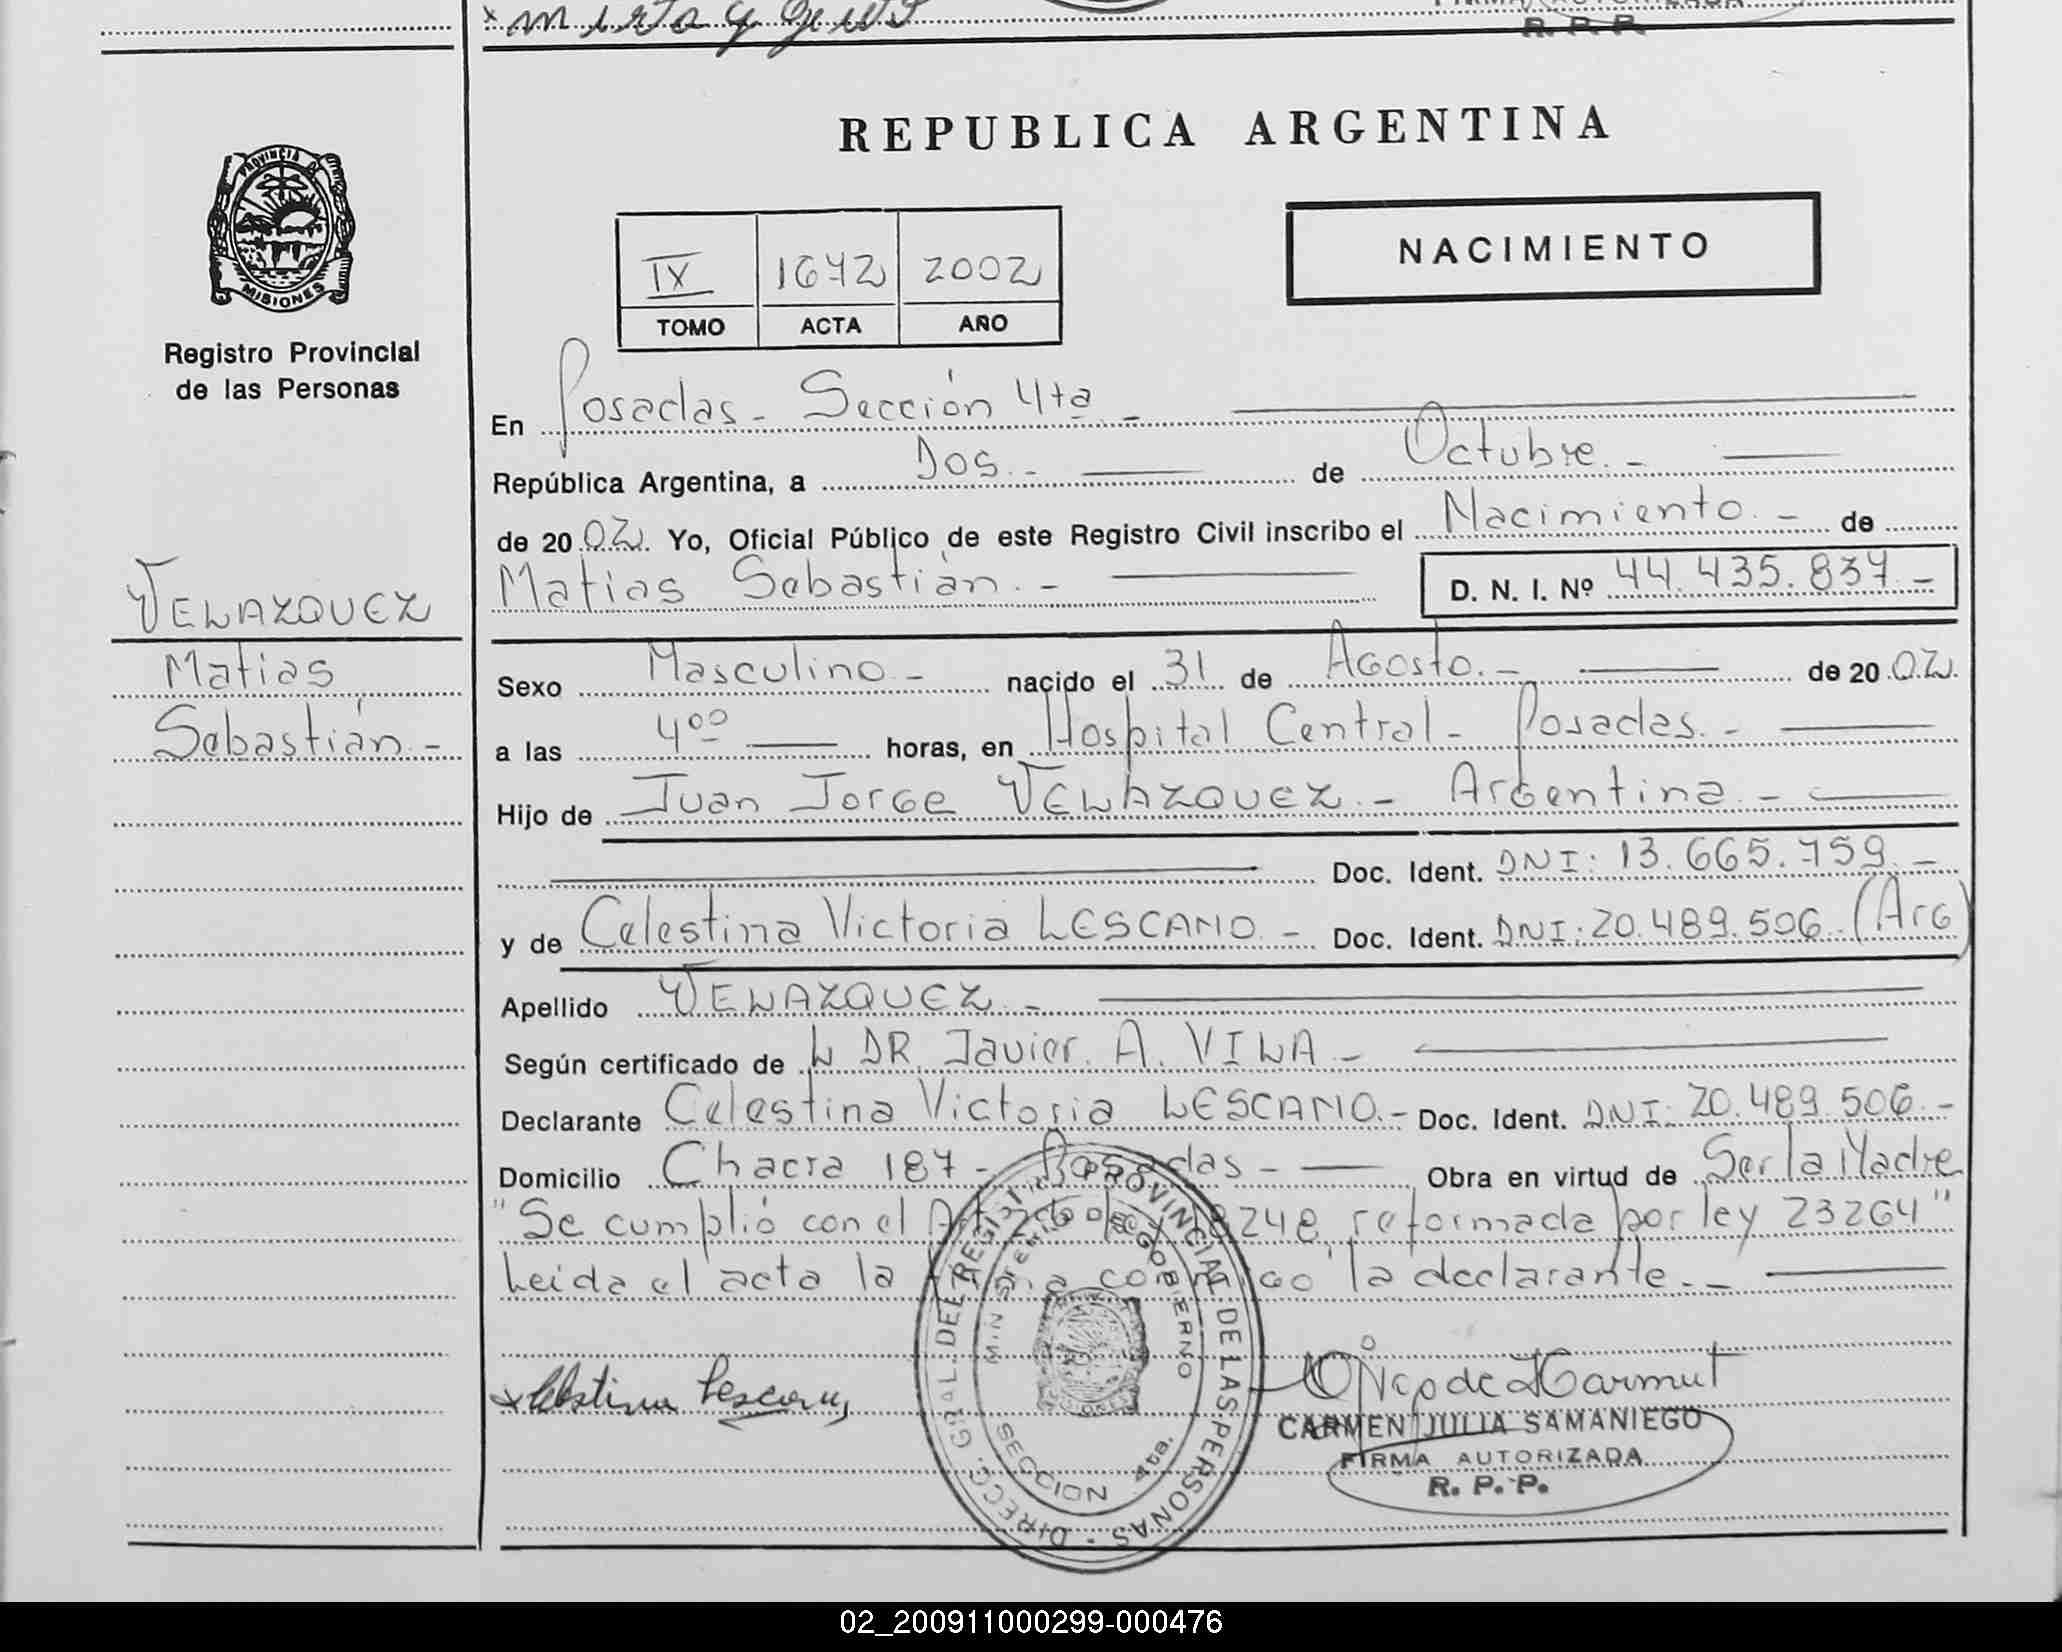 REPUBLICA ARGENTINA
PROVINCIA D MISIONES
Registro Provincial
de las Personas
NACIMIENTO
IX 1672 2002
TOMO ACTA AÑO
En Posadas - Sección 4ta -
República Argentina, a Dos.- de Octubre.-
de 2002. Yo, Oficial Público de este Registro Civil inscribo el Nacimiento.- de
Matias Sebastián.- D. N. I. Nº 44.435.837.-
VELAZQUEZ
Matias
Sebastián.-
Sexo Masculino.- nacido el 31 de Agosto.- de 2002.
a las 4⁰⁰ horas, en Hospital Central - Posadas.-
Hijo de Juan Jorge VELAZQUEZ.- Argentina.-
Doc. Ident. DNI: 13.665.759.-
y de Celestina Victoria LESCANO.- Doc. Ident. DNI: 20.489.506 (Arg)
Apellido VELAZQUEZ.-
Según certificado de L DR. Javier. A. VILA.-
Declarante Celestina Victoria LESCANO.- Doc. Ident. DNI: 20.489.506.-
Domicilio Chacra 187 - Posadas.- Obra en virtud de Ser la Madre
"Se cumplió con el Art. ley 18248, reformada por ley 23264"
Leida el acta la firma conmigo la declarante.-
Celestina Lescano
CARMEN JULIA SAMANIEGO
FIRMA AUTORIZADA
R. P. P.
DIRECC. GRAL. DEL REGISTRO PROVINCIAL DE LAS PERSONAS
MINISTERIO DE GOBIERNO
SECCION 4ta.
02_200911000299-000476